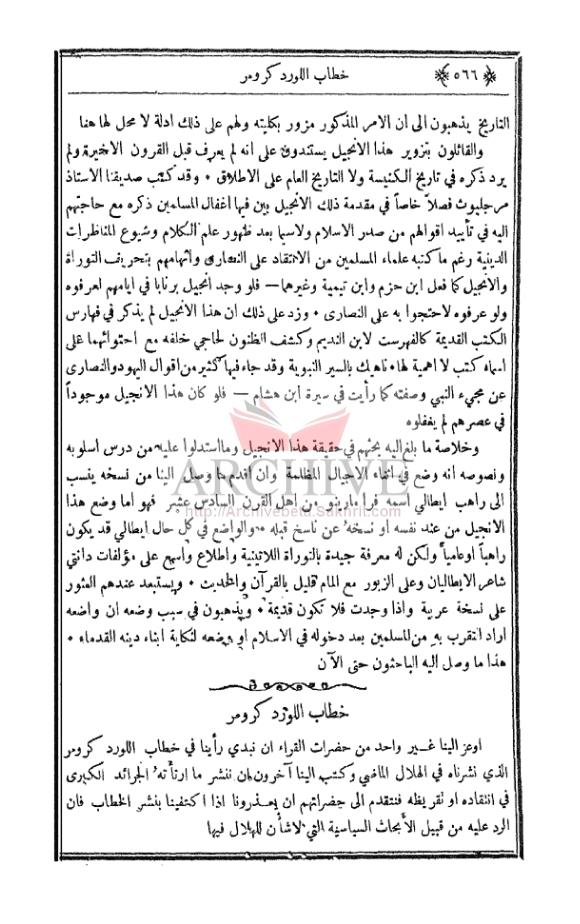 ﴿ ٥٦٦ ﴾
خطاب اللورد كرومر
التاريخ يذهبون الى ان الامر المذكور مزور بكليته ولهم على ذلك ادلة لا محل لها هنا
والقائلون بتزوير هذا الانجيل يستندون على انه لم يعرف قبل القرون الاخيرة ولم
يرد ذكره في تاريخ الكنيسة ولا التاريخ العام على الاطلاق ٠ وقد كتب صديقنا الاستاذ
مرجليوث فصلاً خاصاً في مقدمة ذلك الانجيل بين فيها اغفال المسلمين ذكره مع حاجتهم
اليه في تأييد اقوالهم من صدر الاسلام ولاسيما بعد ظهور علم الكلام وشيوع المناظرات
الدينية رغم ما كتبه علماء المسلمين من الانتقاد على النصارى واتهامهم بتحريف التوراة
والانجيل كما فعل ابن حزم وابن تيمية وغيرهما — فلو وجد انجيل برنابا في ايامهم لعرفوه
ولو عرفوه لاحتجوا به على النصارى ٠ وزد على ذلك ان هذا الانجيل لم يذكر في فهارس
الكتب القديمة كالفهرست لابن النديم وكشف الظنون لحاجي خلفه مع احتوائهما على
اسماء كتب لا اهمية لها ٠ ناهيك بالسير النبوية وقد جاء فيها كثير من اقوال اليهود والنصارى
عن مجيء النبي وصفته كما رأيت في سيرة ابن هشام — فلو كان هذا الانجيل موجوداً
في عصرهم لم يغفلوه
وخلاصة ما بلغ اليه بحثهم في حقيقة هذا الانجيل وما استدلوا عليه من درس اسلوبه
ونصوصه انه وضع في اثناء الاجيال المظلمة وان اقدم ما وصل الينا من نسخه ينسب
الى راهب ايطالي اسمه فرا مارينو من اهل القرن السادس عشر فهو اما وضع هذا
الانجيل من عند نفسه او نسخه عن ناسخ قبله ٠ والواضع في كل حال ايطالي قد يكون
راهباً او عامياً ولكن له معرفة جيدة بالتوراة اللاتينية واطلاع واسع على مؤلفات دانتي
شاعر الايطاليان وعلى الزبور مع المام قليل بالقرآن والحديث ٠ ويستبعد عندهم العثور
على نسخة عربية واذا وجدت فلا تكون قديمة ٠ ويذهبون في سبب وضعه ان واضعه
اراد التقرب به من المسلمين بعد دخوله في الاسلام او وضعه لنكاية ابناء دينه القدماء ٠
هذا ما وصل اليه الباحثون حتى الآن
خطاب اللورد كرومر
اوعز الينا غير واحد من حضرات القراء ان نبدي رأينا في خطاب اللورد كرومر
الذي نشرناه في الهلال الماضي وكتب الينا آخرون ان ننشر ما ارتأته الجرائد الكبرى
في انتقاده او تقريظه فنتقدم الى حضراتهم ان يعذرونا اذا اكتفينا بنشر الخطاب فان
الرد عليه من قبيل الأبحاث السياسية التي لا شأن للهلال فيها
ARCHIVE
http://Archivebeta.Sakhrit.com